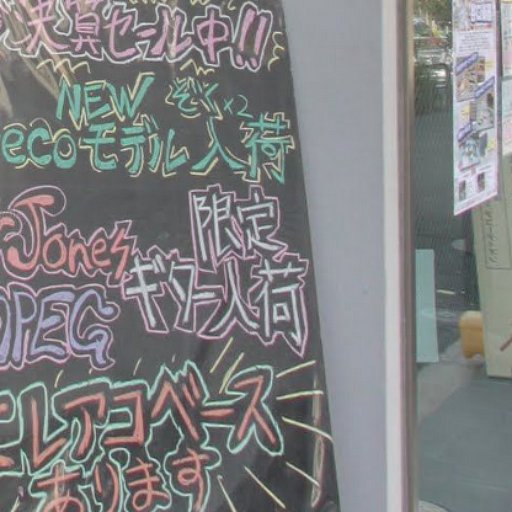 決算セール中!!
NEW ぞくぞく×2
ecoモデル入荷
Jones 限定
PEG ギター入荷
エレアコベース
あります